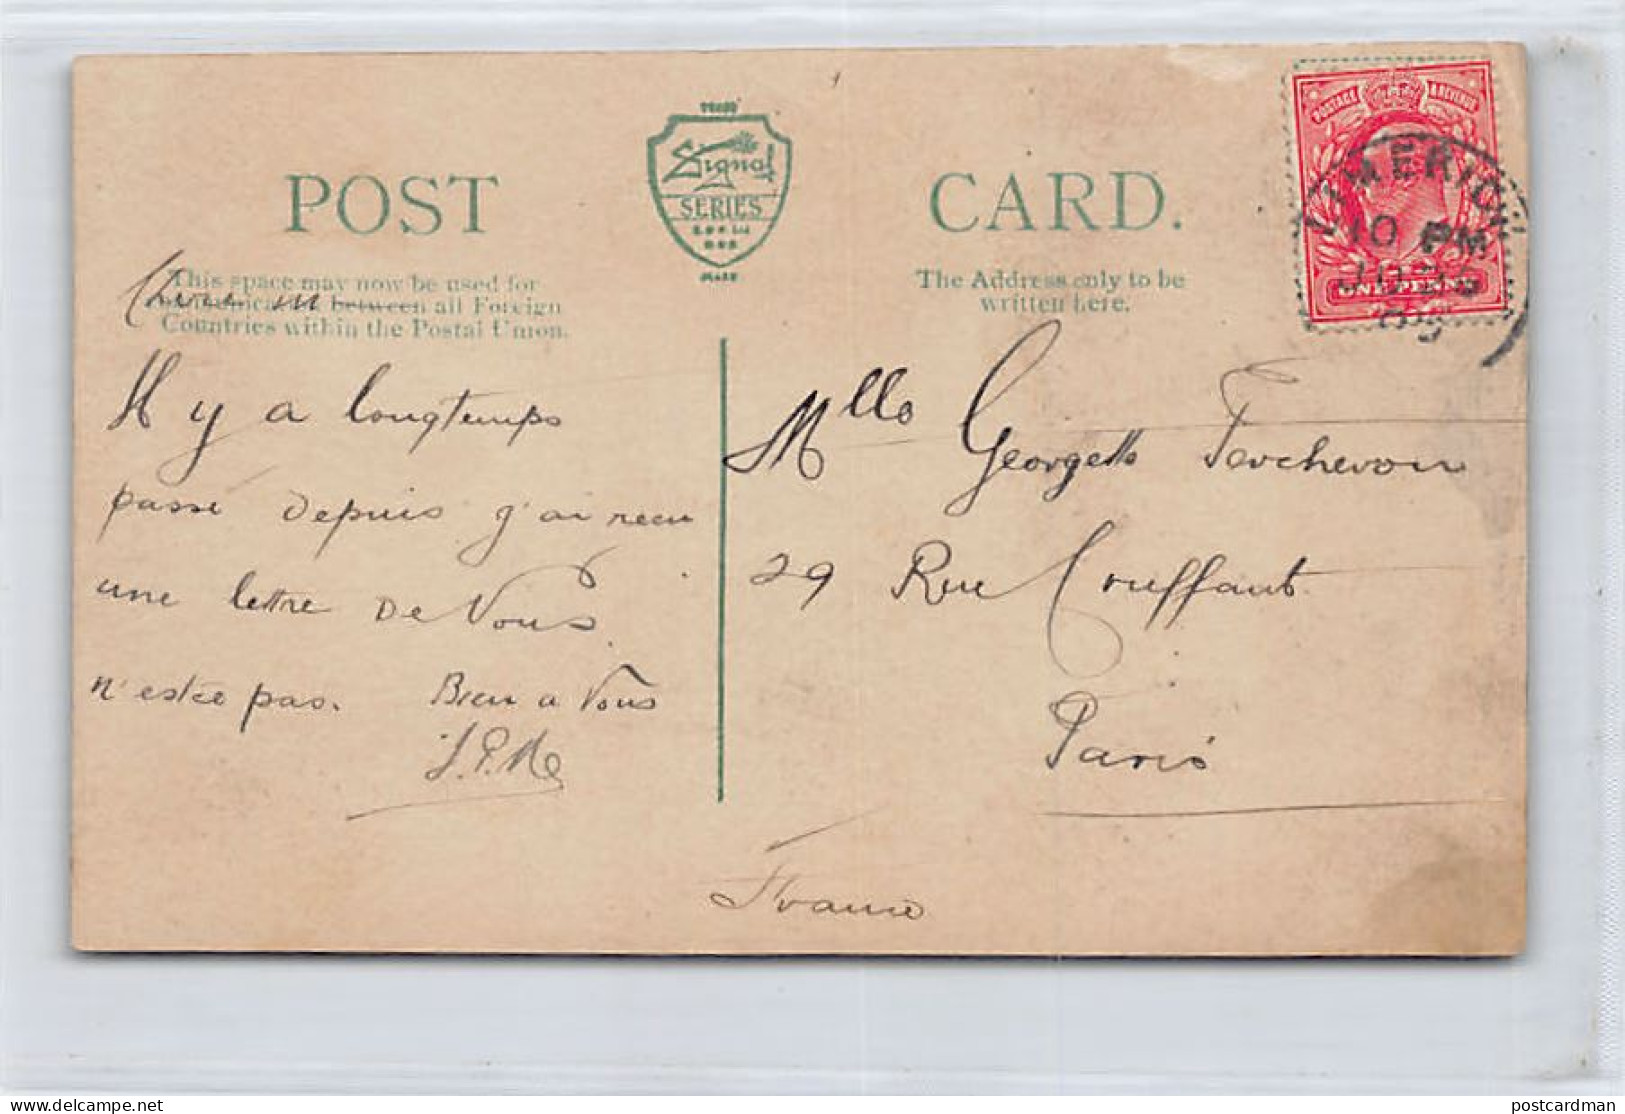 TRADE
Signal
SERIES
MARK
POST CARD.
This space may now be used for
between all Foreign
Countries within the Postal Union.
The Address only to be
written here.
POSTAGE & REVENUE
ONE PENNY
LIMERICK
10 PM
09
Il y a longtemps
passé depuis j'ai recu
une lettre de Vous
n'estce pas. Bien a Vous
Mlle Georgette
29 Rue
Paris
France
postcardman